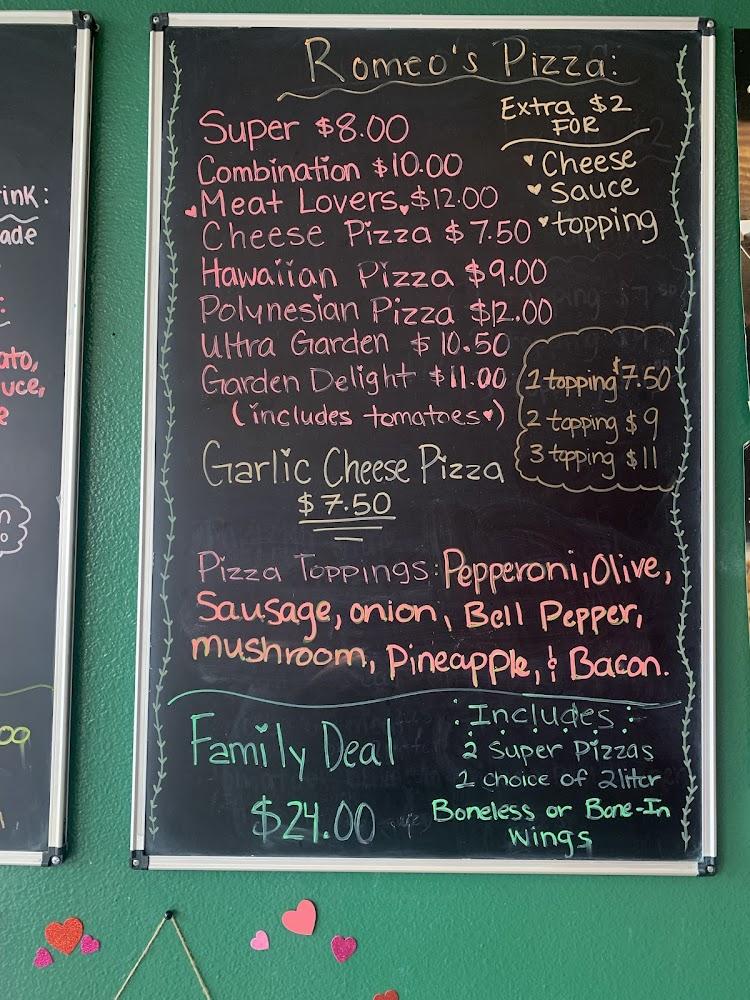 Romeo's Pizza:
Super $8.00
Combination $10.00
Meat Lovers $12.00
Cheese Pizza $7.50
Hawaiian Pizza $9.00
Polynesian Pizza $12.00
Ultra Garden $10.50
Garden Delight $11.00
(includes tomatoes♥)
Extra $2
FOR
♥ Cheese
♥ Sauce
♥ topping
1 topping $7.50
2 topping $9
3 topping $11
Garlic Cheese Pizza
$7.50
Pizza Toppings: Pepperoni, Olive,
Sausage, onion, Bell Pepper,
mushroom, Pineapple, & Bacon.
Family Deal
$24.00
: Includes :
2 Super Pizzas
1 choice of 2liter
Boneless or Bone-In
Wings